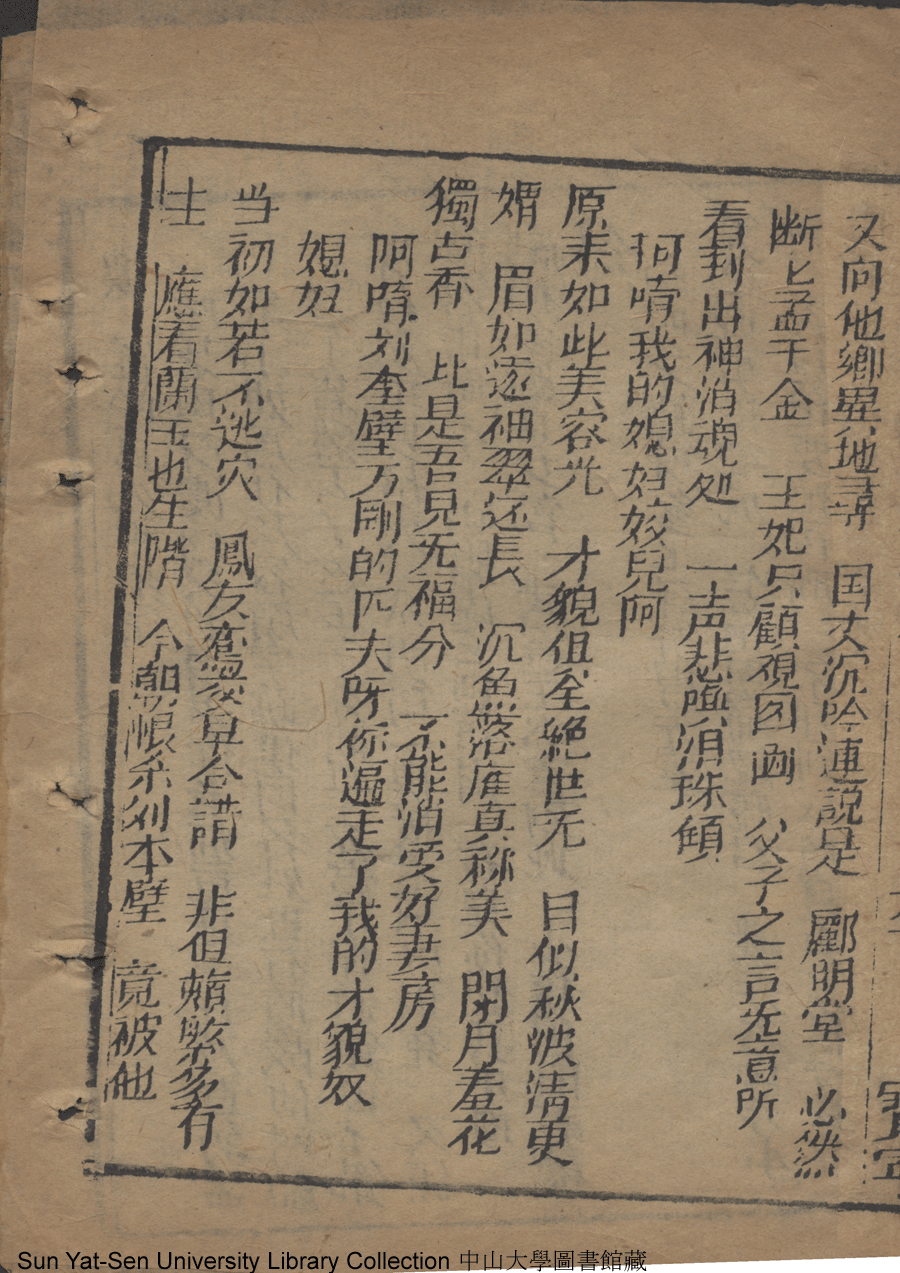 又向他鄉異地尋　国丈沉吟連説是　酈明堂　必然
断匕孟千金　王妃只顧視図画　父子之言无意所
看到出神泊魂処　一声悲噎泪珠傾
阿唷我的媳妇姣兒阿
原来如此美容光　才貌俱全絶世无　目似秋波清更
媚　眉如遠袖翠还長　沉魚落雁真称美　閉月羞花
獨占香　比是吾兒无福分　不能消受好妻房
阿唷刘奎璧万剮的匹夫呀你逼走了我的才貌双
媳妇
当初如若不逃灾　鳳友鸞交早合諧　非但頻繁多有
主　應看蘭玉也生階　今朝恨杀刘本璧　竟被他
Sun Yat-Sen University Library Collection 中山大學圖書館藏